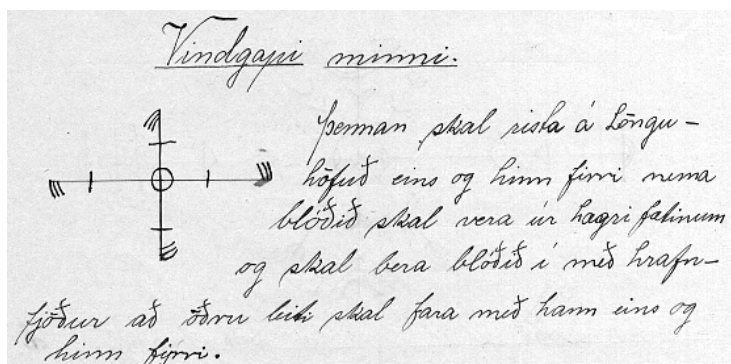 Vindgapi minni.
Þennan skal rista á Löngu-
höfuð eins og hinn firri nema
blóðið skal vera úr hægri fætinum
og skal bera blóðið í með hrafn-
fjöður að öðru leiti skal fara með hann eins og
hinn firri.